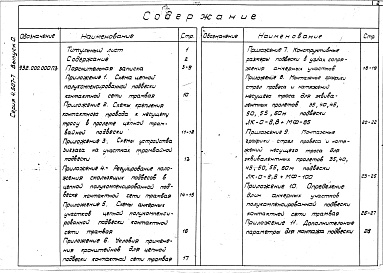 2
Содержание
Серия 4.507.7 Выпуск 0
Обозначение
Наименование
Стр.
Титульный лист 1
Содержание 2
Пояснительная записка
Приложение 1. Схема цепной
полукомпенсированной подвески
контактной сети трамвая 10
Приложение 2. Схемы крепления
контактного провода к несущему
тросу в пролете цепной трам-
вайной подвески 11-12
Приложение 3. Схемы устройства
зигзага на участках трамвайной
подвески 13
Приложение 4. Регулирование поло-
жения скользящих подвесов в
цепной полукомпенсированной под-
веске контактной сети трамвая 14-15
Приложение 5. Схемы анкерных
участков цепной полукомпенси-
рованной подвески контактной
сети трамвая 16
Приложение 6. Условия примене-
ния кронштейнов для цепной
подвески контактной сети трамвая 17
Обозначение
Наименование
Стр.
Приложение 7. Конструктивные
размеры подвески в узлах сопря-
жения анкерных участков 18-19
Приложение 8. Монтажные кривые
стрел провеса и натяжений
несущего троса для эквива-
лентных пролетов 35, 40, 45,
50, 55, 60м подвески
20-22
Приложение 9. Монтажные
графики стрел провеса и натя-
жений несущего троса для
эквивалентных пролетов 35, 40,
45, 50, 55, 60м подвески
23-25
Приложение 10. Определение
длин анкерных участков
полукомпенсированной подвески
контактной сети трамвая 26-27
Приложение 11. Дополнительные
параметры для монтажа подвески 28